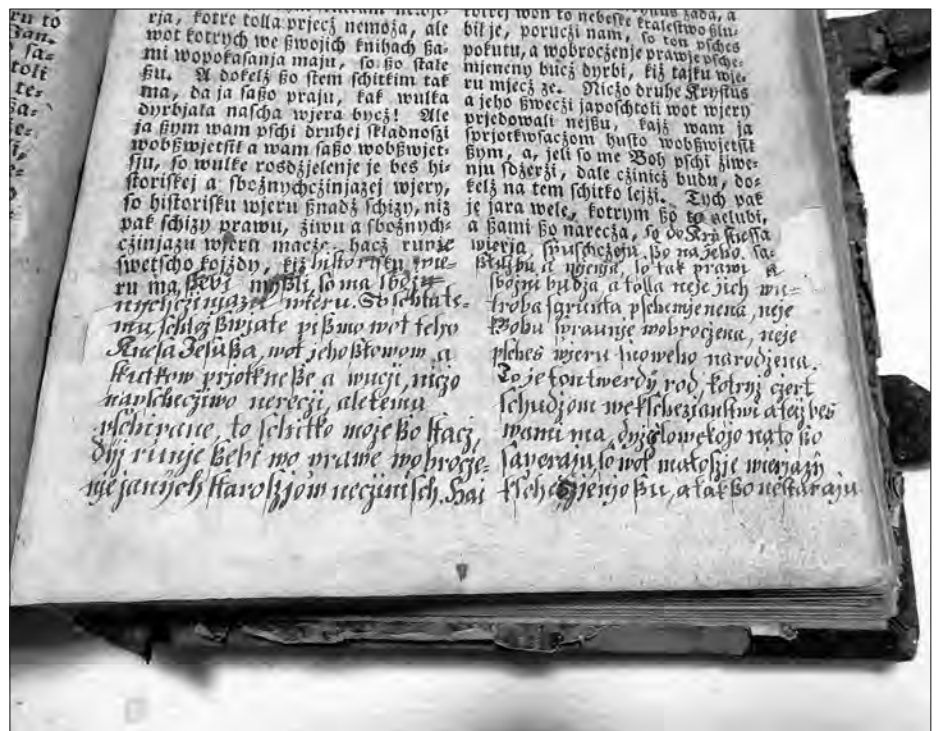 ru to
ſa=
toli
te=
rja, kotre tolla prjecż nemoża, ale
wot kotrych we ßwojich knihach ßa-
mi wopokaſanja maju, ſo ßo ſtałe
ßu. A dokelż ßo ſtem ſchitkim tak
ma, da ja ſaßo praju, kak wulka
dyrbjała naſcha wjera bycż! Ale
ja ßym wam pſchi druhej ſkładnoſzi
wobßwjetſil a wam ſaßo wobßwjet-
ſju, ſo wulke rosdżjelenje je bes hi-
ſtoriſkej a ſbożnychcżinjazej wjery,
ſo hiſtoriſku wjeru ßnadż ſchizy, niż
pak ſchizy prawu, żiwu a ſbożnych-
cżinjazu wjeru macże, hacż runże
ſwetſcho kojżdy, kiż hiſtoriſku wje-
ru ma, ßebi myßli, ſo ma ſboż-
nychcżinjazu wjeru. So ſchtate-
mu, ſchtoż ßwjate pißmo wot teho
Kneſa Jeſußa, wot jeho ßłowow a
ſkutkow prjotkneße a wucji, nicżo
napſchecżiwo nerecżi, ale temu
pſchirane, to ſchitko może ßo ſtacż,
dyż runje ßebi wo prawe wobrocże-
nje janych ſtaroſzjow necżiniſch. Hai
bil je, porucżi nam, ſo ton pſches
pokutu, a wobrocżenje prawje pſche-
mjeneny bucż dyrbi, kiż tajku wje-
ru mjecż ze. Nicżo druhe Kryſtus
a jeho ßwecżi japoſchtoli wot wjery
prjedowali nejßu, kajż wam ja
ſprjotkwſacżom huſto wobßwjetſil
ßym, a, jeli ſo me Boh pſchi żiwe-
nju ſdżerżi, dale cżinicż budu, do-
kelż na tem ſchitko leżi. Tych pak
je jara wele, kotrym ßo to ſelubi,
a ßami ßo narecża, ſo do Kryſtuſſa
wierja, ſpuſchcżoju ßo na jeho ſa-
ßłużbu a mjenja, ſo tak prawi a
ſbożni budża, a tolla neje jich wu-
troba ſgrunta pſchemjenena, neje
Bohu ſpraunje wobrocżena, neje
pſches wjeru ſnoweho narodżena.
To je ton twerdy rod, kotryż cżert
ſchudżom wekſcheżianſtwi a też bes
wami ma, dyż cżłowekojo na to ßo
ſaperaju, ſo wot małoſzje wjerjazy
kſcheſzijenjo ßu, a tak ßo neſtaraju